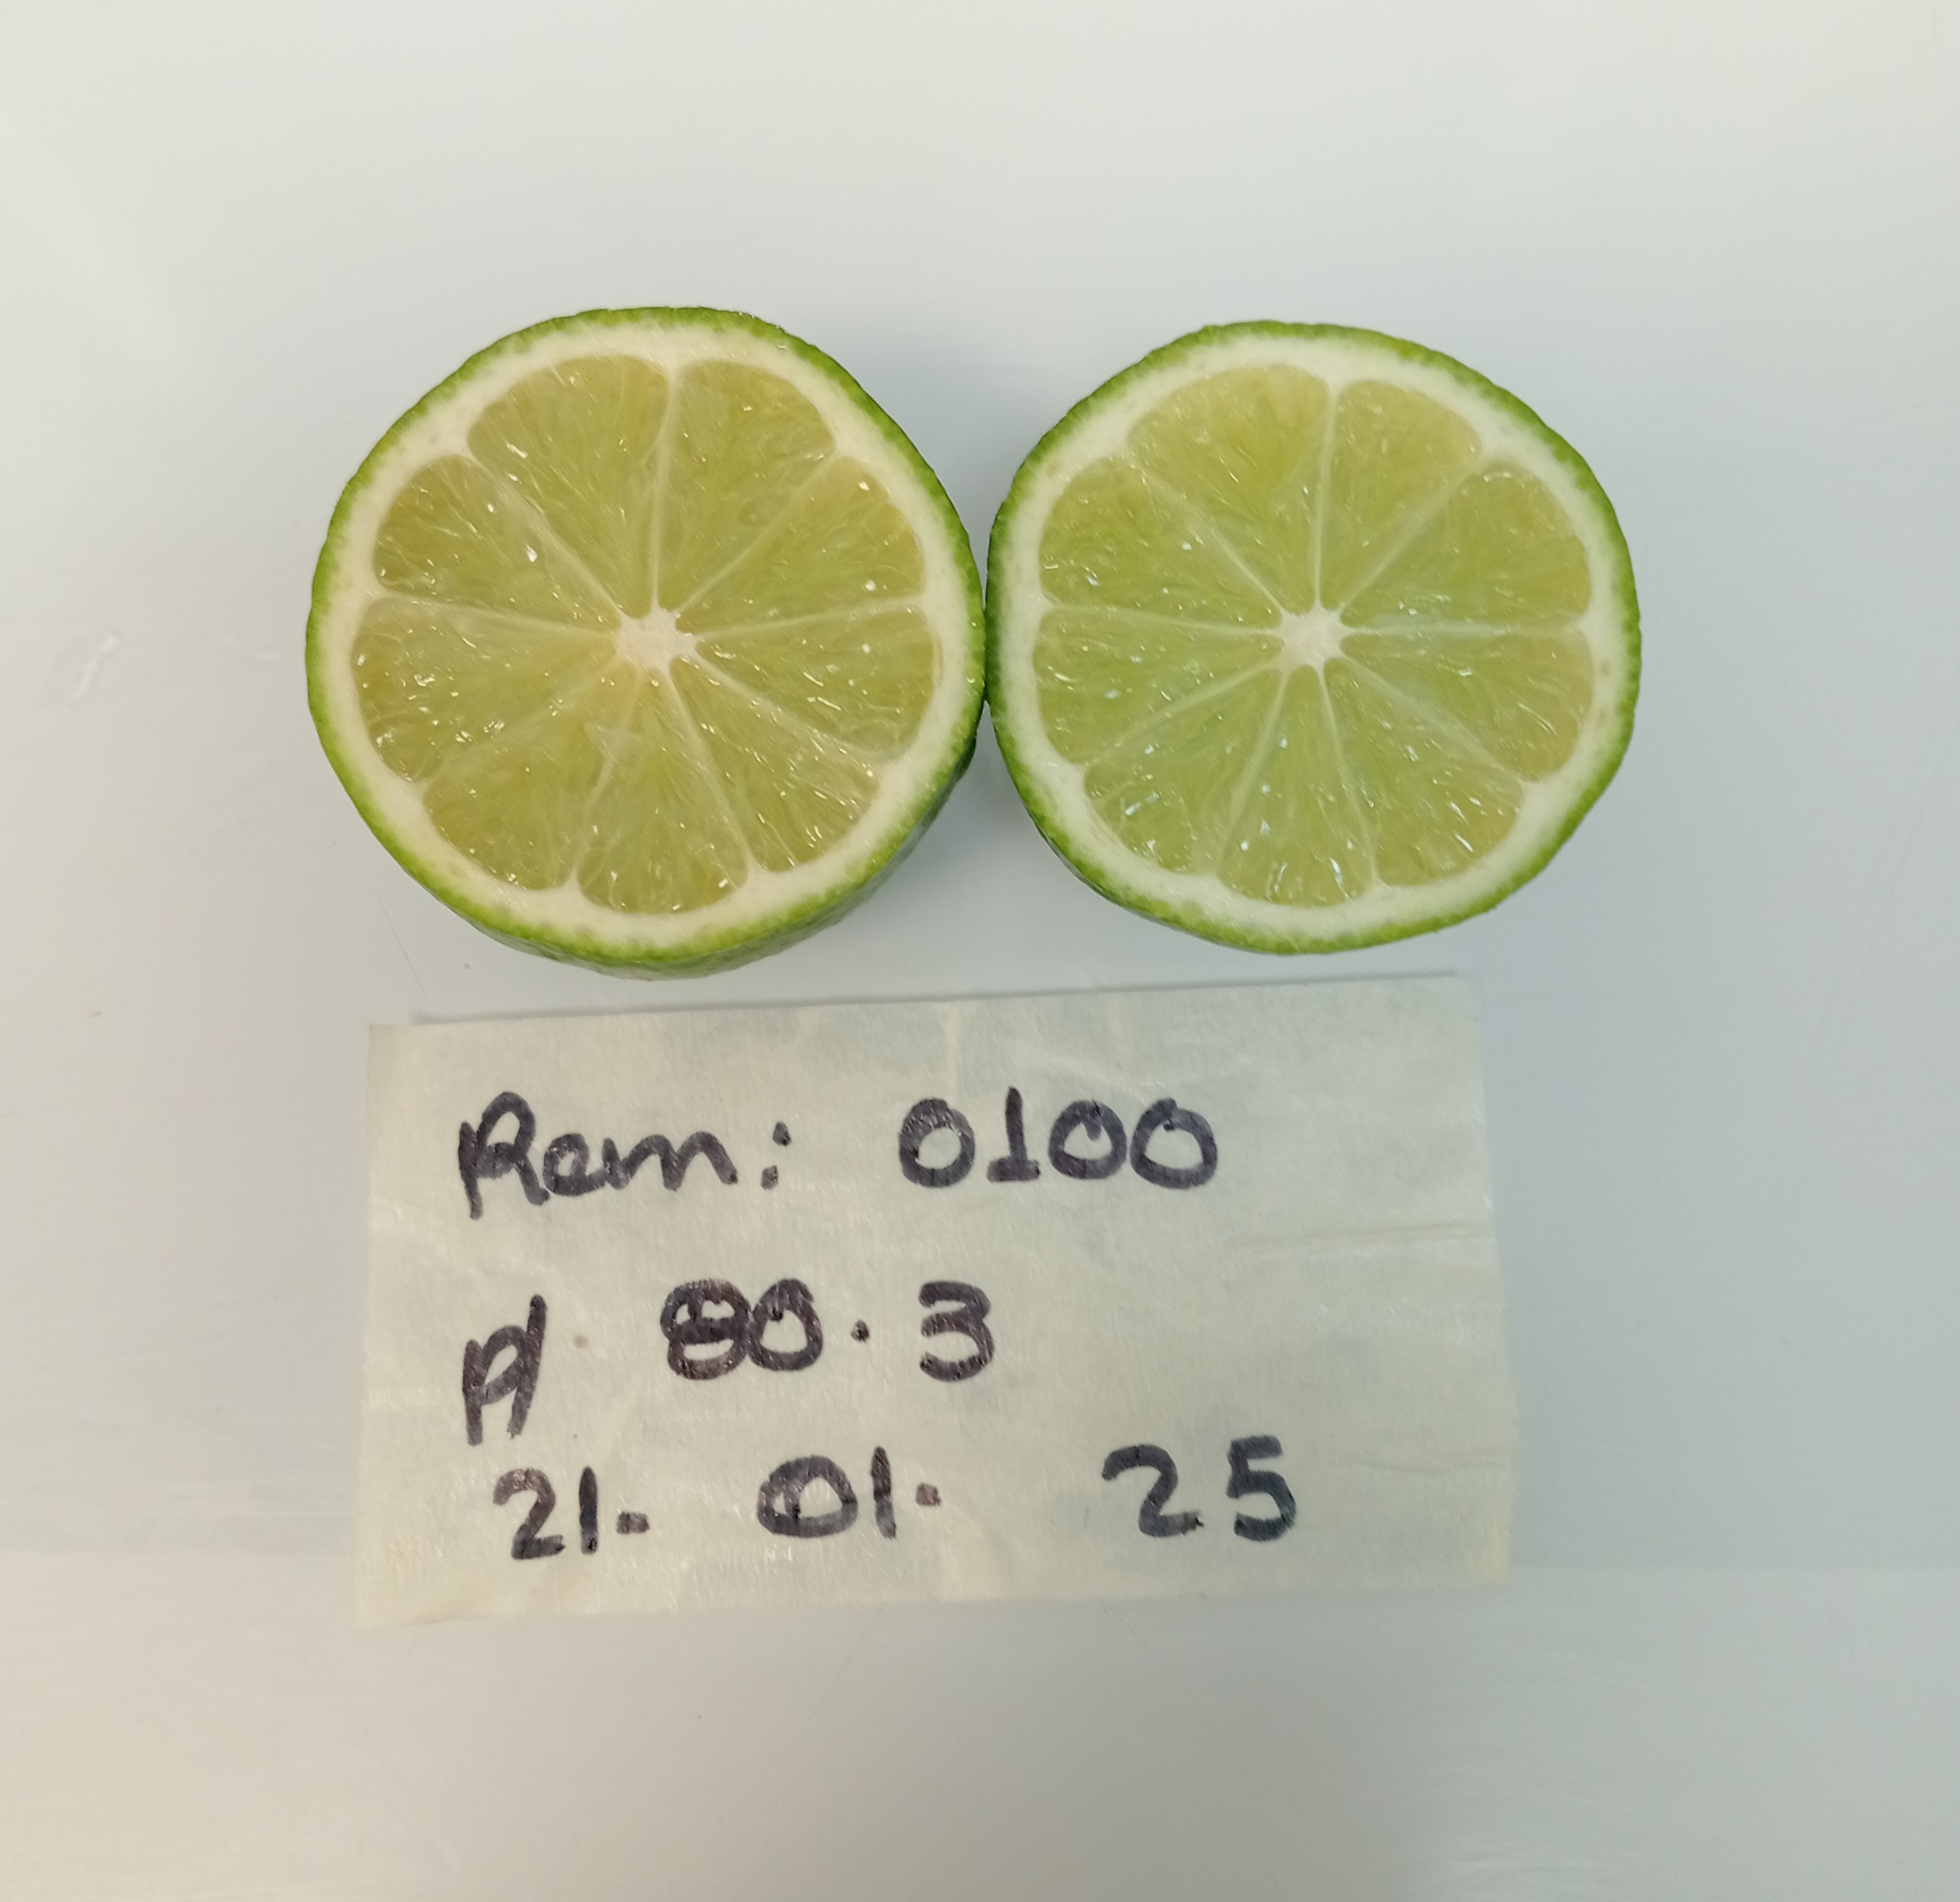 Rem: 0100
p/ 80.3
21. 01. 25